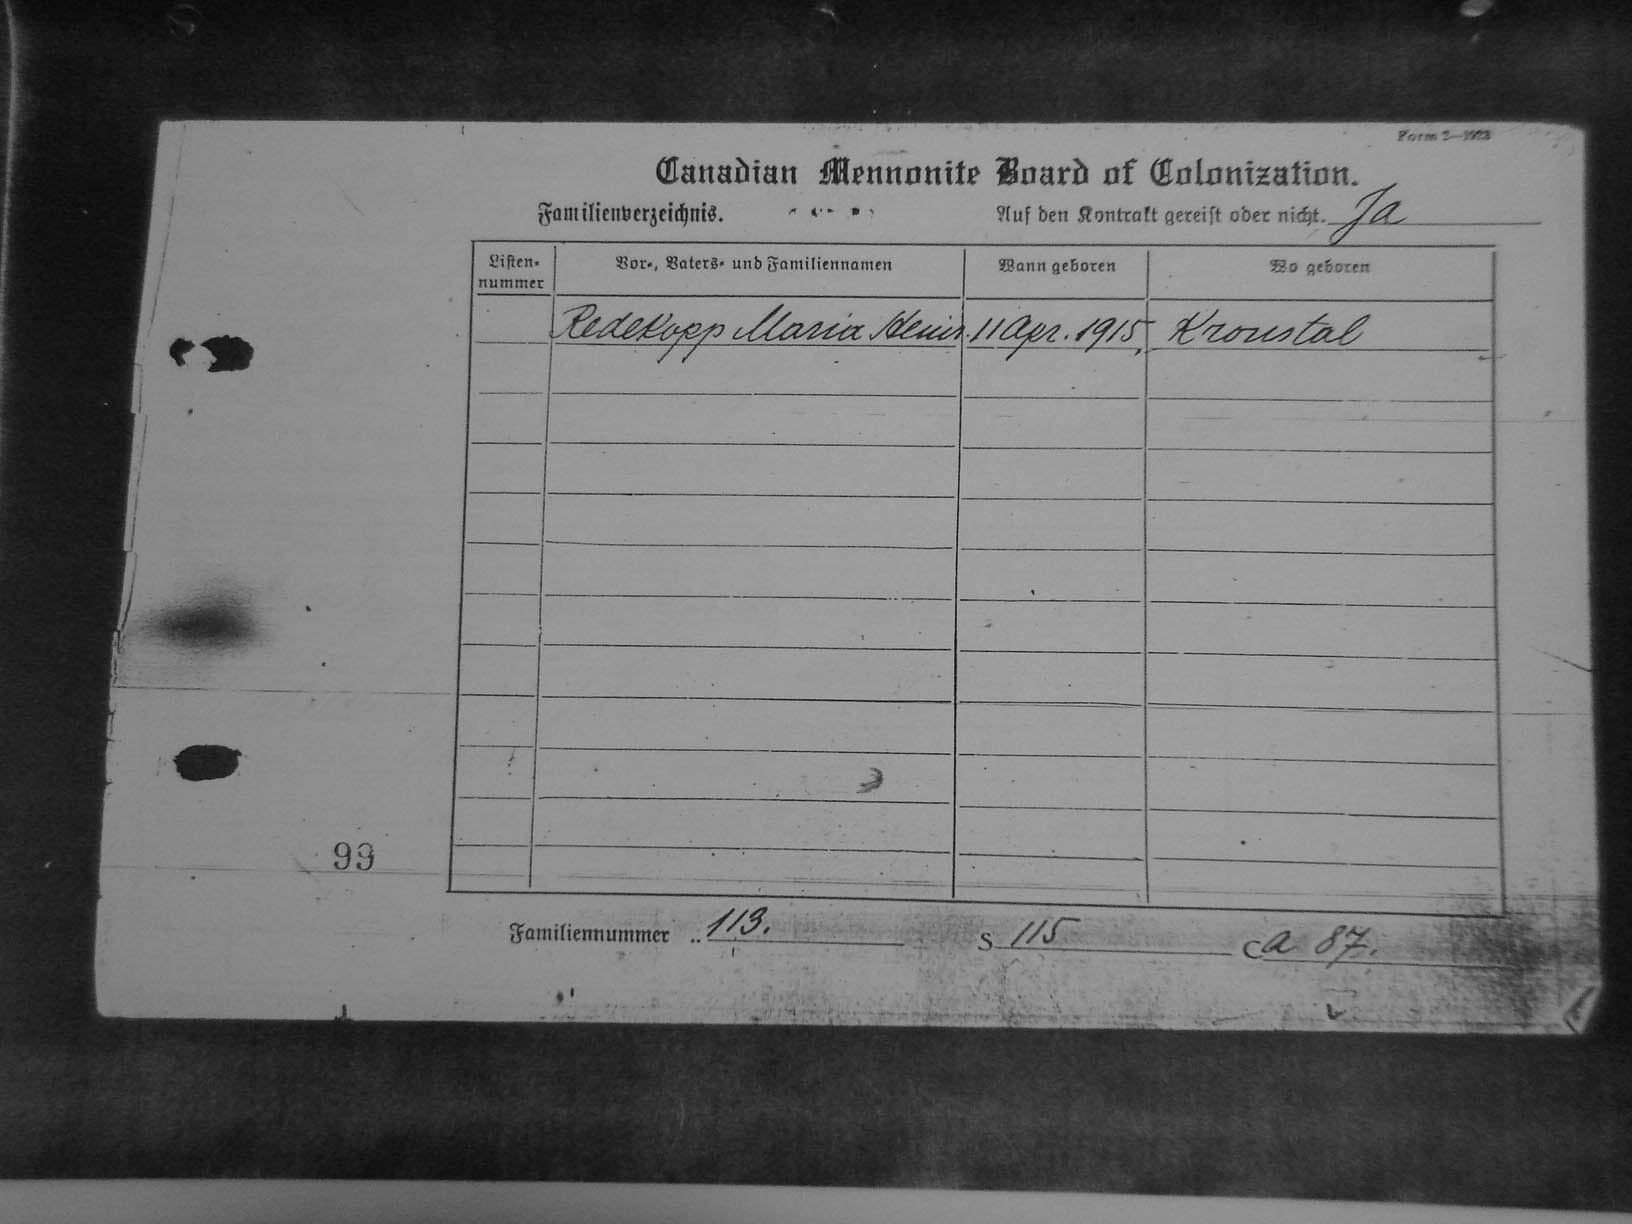 Form 2—1923
Canadian Mennonite Board of Colonization.
Familienverzeichnis.
Auf den Kontrakt gereist oder nicht. Ja
Listen-
nummer
Vor-, Vaters- und Familiennamen
Wann geboren
Wo geboren
Redekopp Maria Heinr. 11 Apr. 1915, Kronstal
99
Familiennummer 113. S 115 Ca 87.